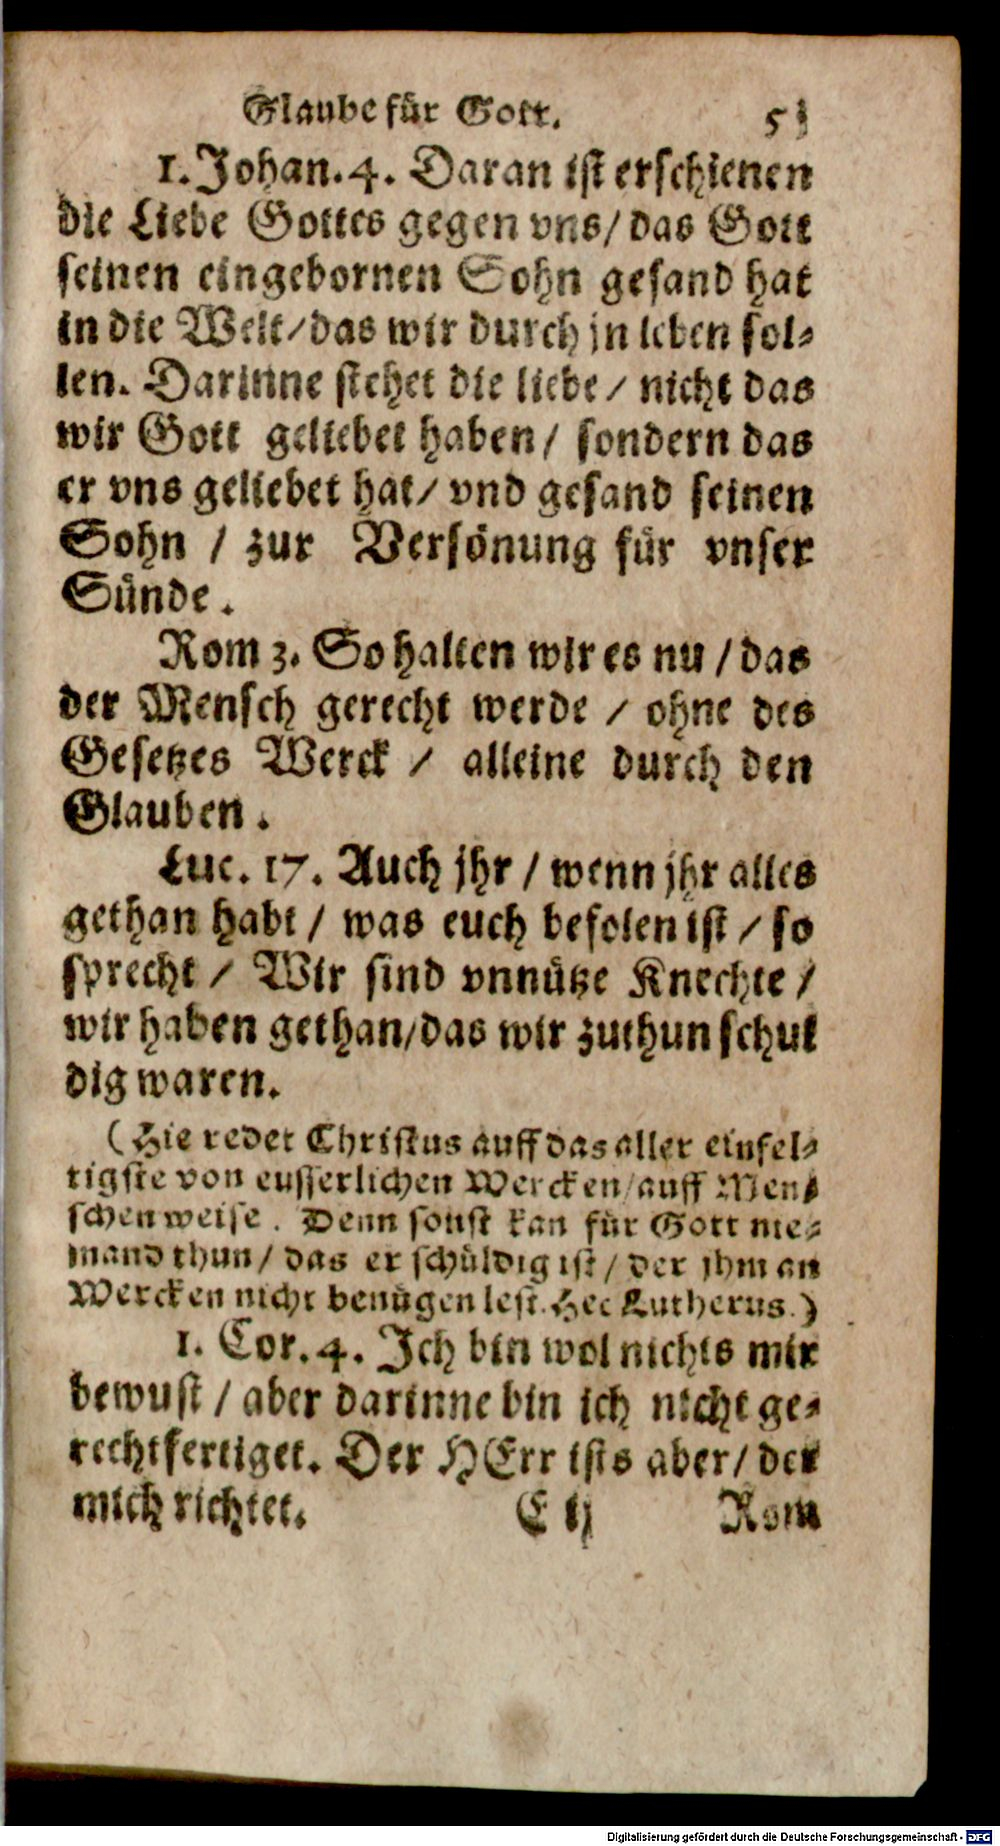 Glaube für Gott. 51
1. Johan. 4. Daran ist erschienen
die Liebe Gottes gegen vns/ das Gott
seinen eingebornen Sohn gesand hat
in die Welt/ das wir durch jn leben sol⸗
len. Darinne stehet die liebe/ nicht das
wir Gott geliebet haben/ sondern das
er vns geliebet hat/ vnd gesand seinen
Sohn / zur Versönung für vnser
Sünde.
Rom 3. So halten wir es nu / das
der Mensch gerecht werde / ohne des
Gesetzes Werck / alleine durch den
Glauben.
Luc. 17. Auch jhr / wenn jhr alles
gethan habt / was euch befolen ist / so
sprecht / Wir sind vnnütze Knechte /
wir haben gethan/ das wir zuthun schul
dig waren.
(Hie redet Christus auff das aller einfel⸗
tigste von eusserlichen Wercken/ auff Men⸗
schen weise. Denn sonst kan für Gott nie⸗
mand thun/ das er schüldig ist/ der jhm an
Wercken nicht benügen lest. Hec Lutherus.)
1. Cor. 4. Ich bin wol nichts mir
bewust / aber darinne bin ich nicht ge⸗
rechtfertiget. Der HErr ists aber/ der
mich richtet. E ij Rom
Digitalisierung gefördert durch die Deutsche Forschungsgemeinschaft - DFG